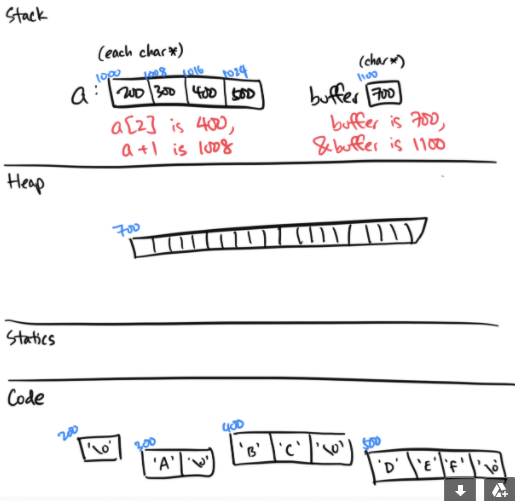 Stack
(each char*)
1000 1008 1016 1024
a: 200 300 400 500
a[2] is 400,
a+1 is 1008
(char*)
1100
buffer 700
buffer is 700,
&buffer is 1100
Heap
700
Statics
Code
200
'\0'
300
'A' '\0'
400
'B' 'C' '\0'
500
'D' 'E' 'F' '\0'